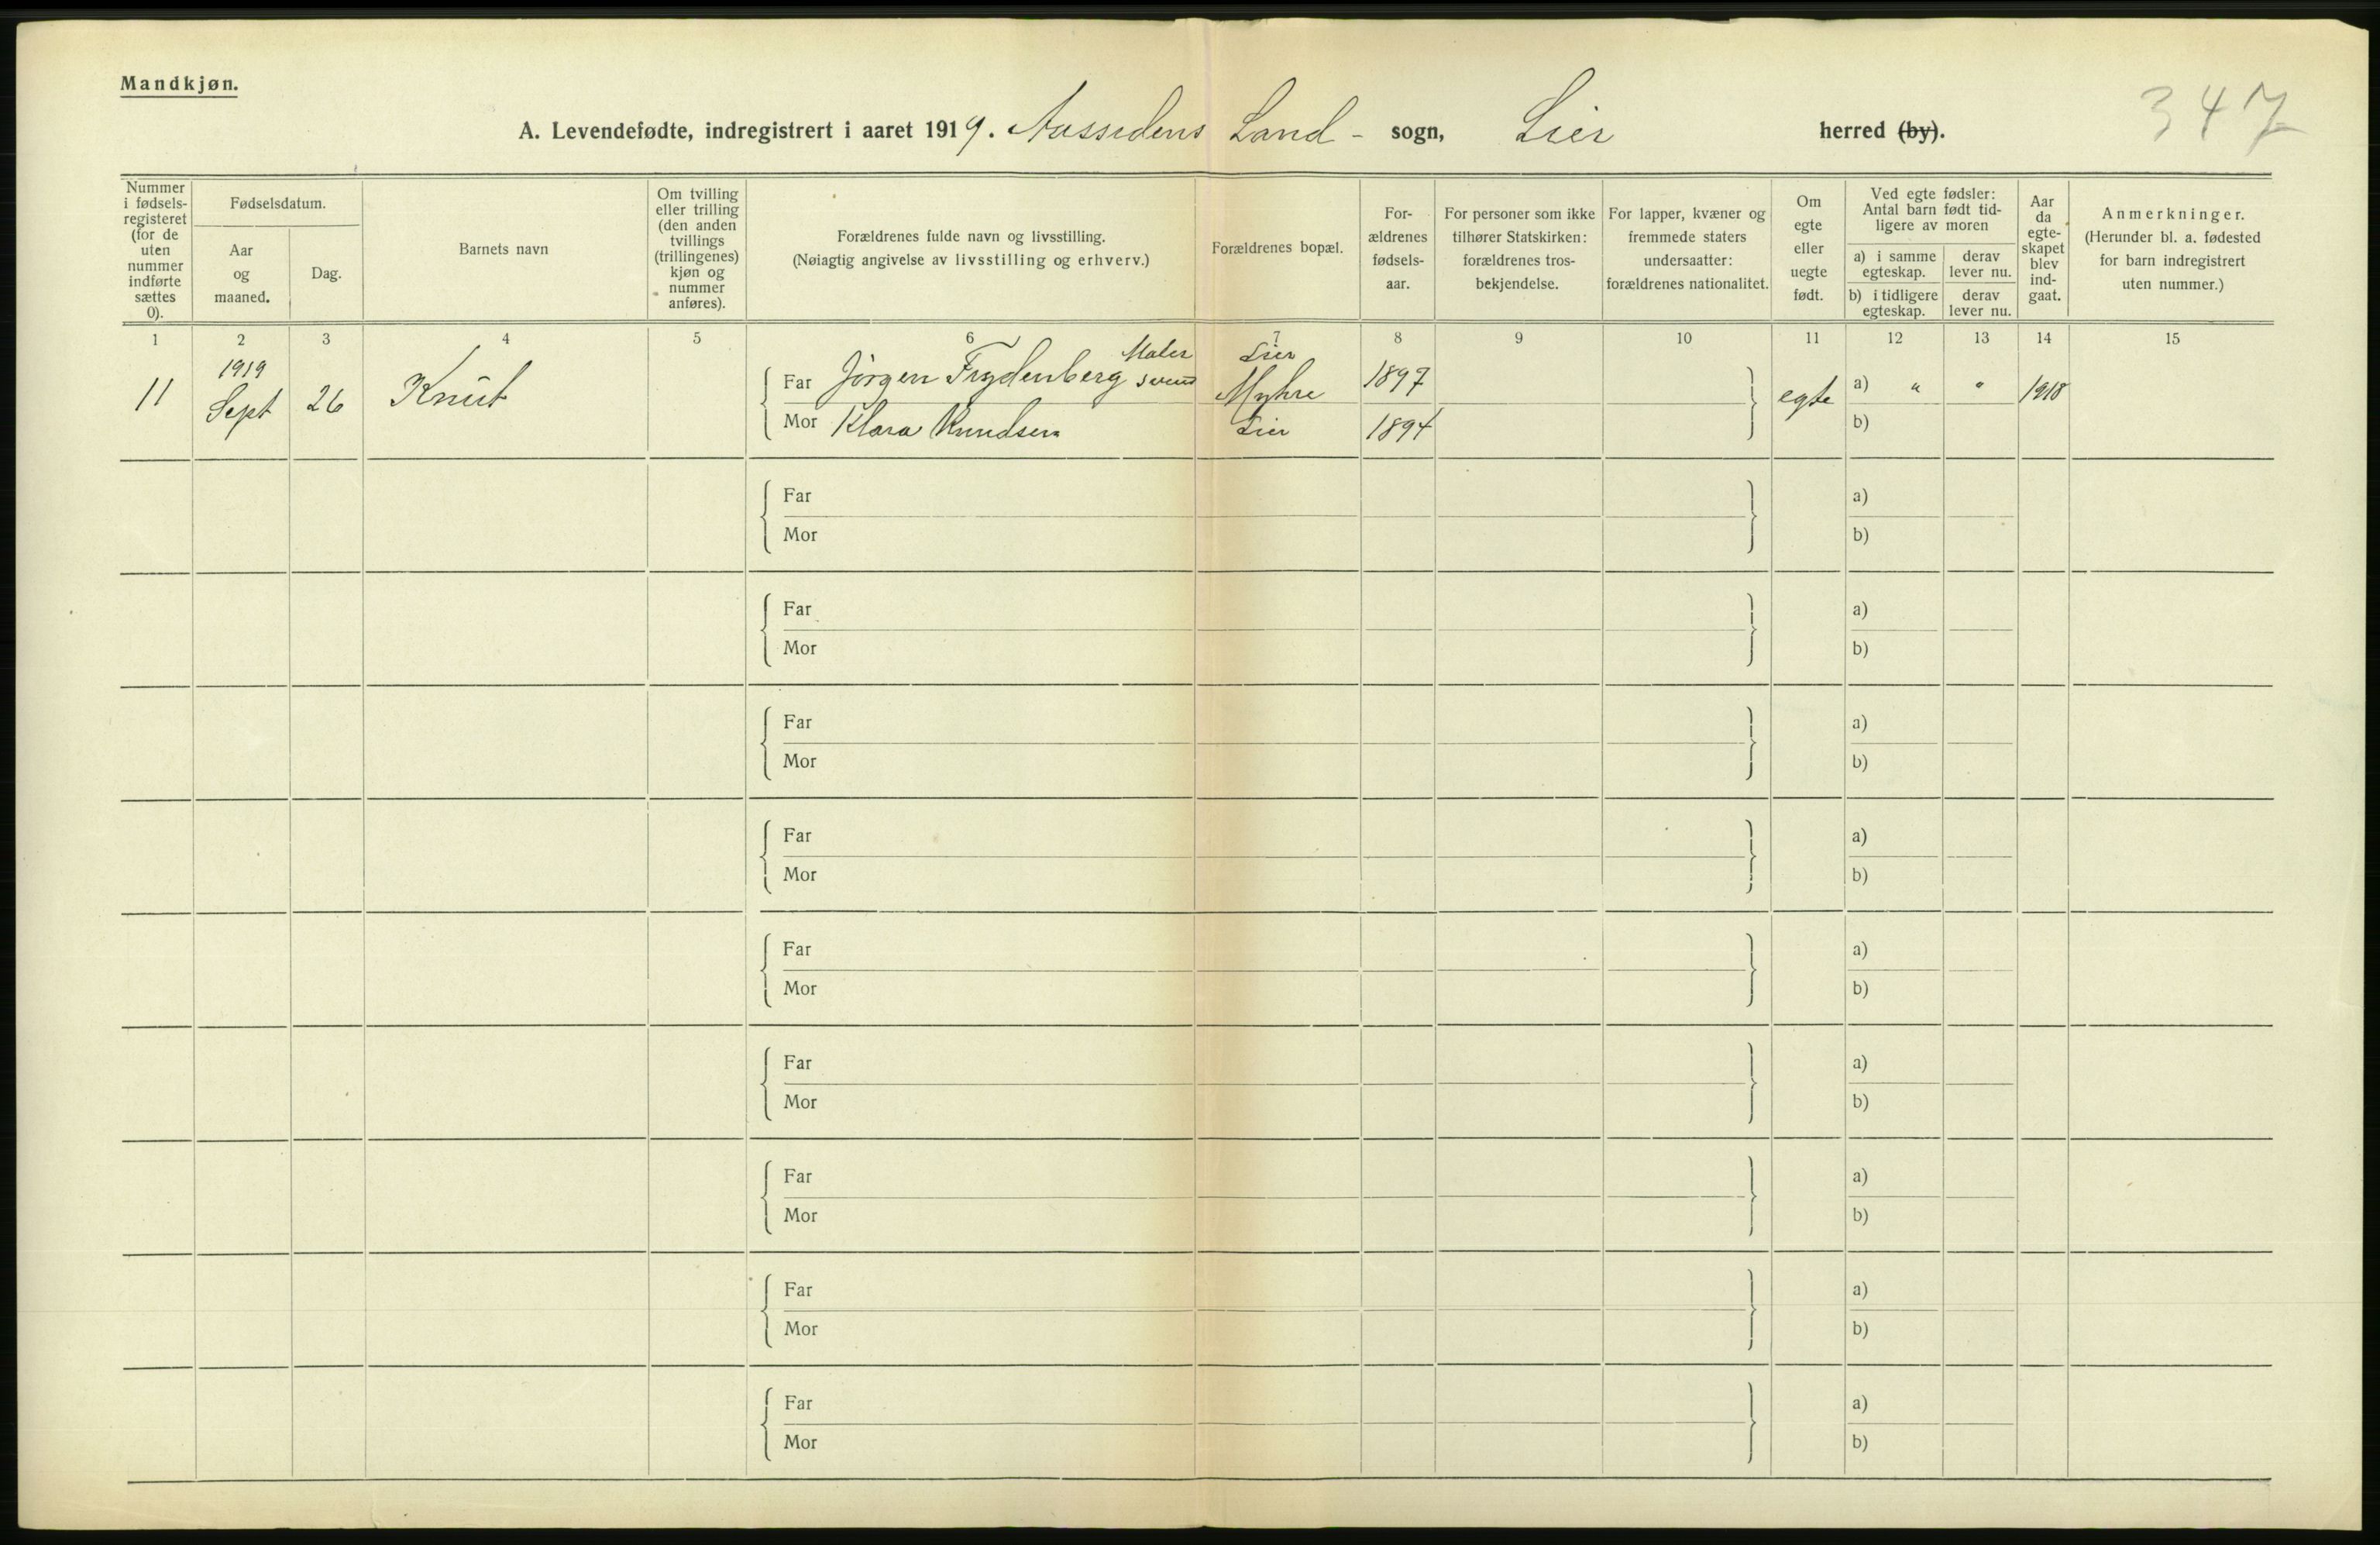 Mandkjøn.
A. Levendefødte, indregistrert i aaret 1919. Aassidens Land- sogn, Lier herred (by).
347
Nummer i fødsels- registeret (for de uten nummer indførte sættes 0).
Fødselsdatum.
Aar og maaned.
Dag.
Barnets navn
Om tvilling eller trilling (den anden tvillings (trillingenes) kjøn og nummer anføres).
Forældrenes fulde navn og livsstilling.
(Nøiagtig angivelse av livsstilling og erhverv.)
Forældrenes bopæl.
For- ældrenes fødsels- aar.
For personer som ikke tilhører Statskirken: forældrenes tros- bekjendelse.
For lapper, kvæner og fremmede staters undersaatter: forældrenes nationalitet.
Om egte eller uegte født.
Ved egte fødsler: Antal barn født tid- ligere av moren
a) i samme egteskap.
derav lever nu.
b) i tidligere egteskap.
derav lever nu.
Aar da egte- skapet blev ind- gaat.
Anmerkninger.
(Herunder bl. a. fødested for barn indregistrert uten nummer.)
1 2 3 4 5 6 7 8 9 10 11 12 13 14 15
11 1919 Sept 26 Knut
Far Jørgen Frydenberg Maler svend Lier Myhre 1897 egte a) " " 1918
Mor Klara Knudsen Lier 1894 b)
Far a)
Mor b)
Far a)
Mor b)
Far a)
Mor b)
Far a)
Mor b)
Far a)
Mor b)
Far a)
Mor b)
Far a)
Mor b)
Far a)
Mor b)
Far a)
Mor b)